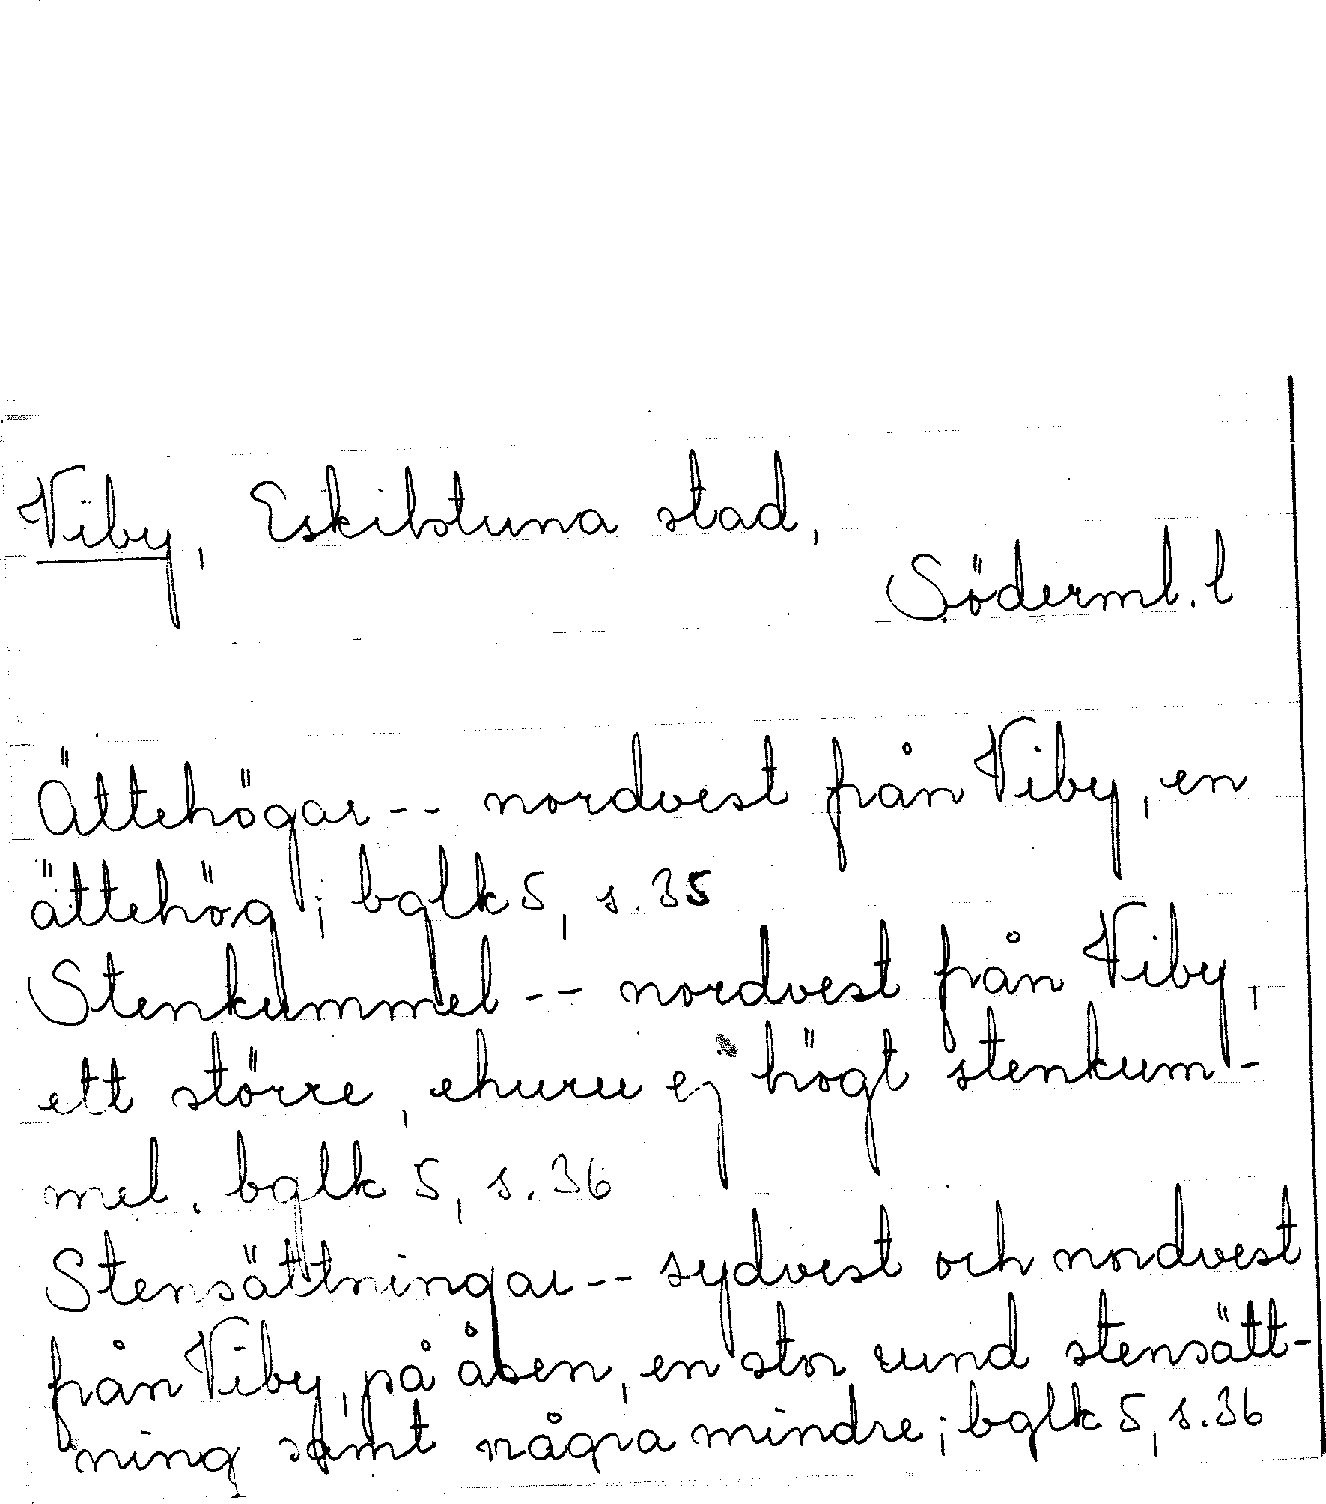 Viby, Eskilstuna stad,
Söderml. l
Ättehögar -- nordvest från Viby, en
ättehög; bglk 5, s. 35
Stenkummel -- nordvest från Viby,
ett större, ehuru ej högt stenkum-
mel. bglk 5, s. 36
Stensättningar -- sydvest och nordvest
från Viby, på åsen, en stor rund stensätt-
ning samt några mindre; bglk 5, s. 36